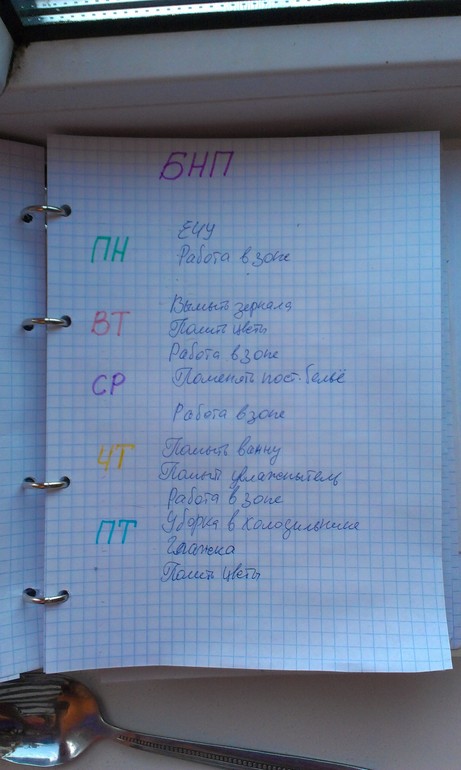 БНП
ПН
ЕЧУ
Работа в зоне
ВТ
Вымыть зеркала
Полить цветы
Работа в зоне
СР
Поменять пост. бельё
Работа в зоне
ЧТ
Помыть ванну
Помыть увлажнитель
Работа в зоне
ПТ
Уборка в холодильнике
Глажка
Полить цветы